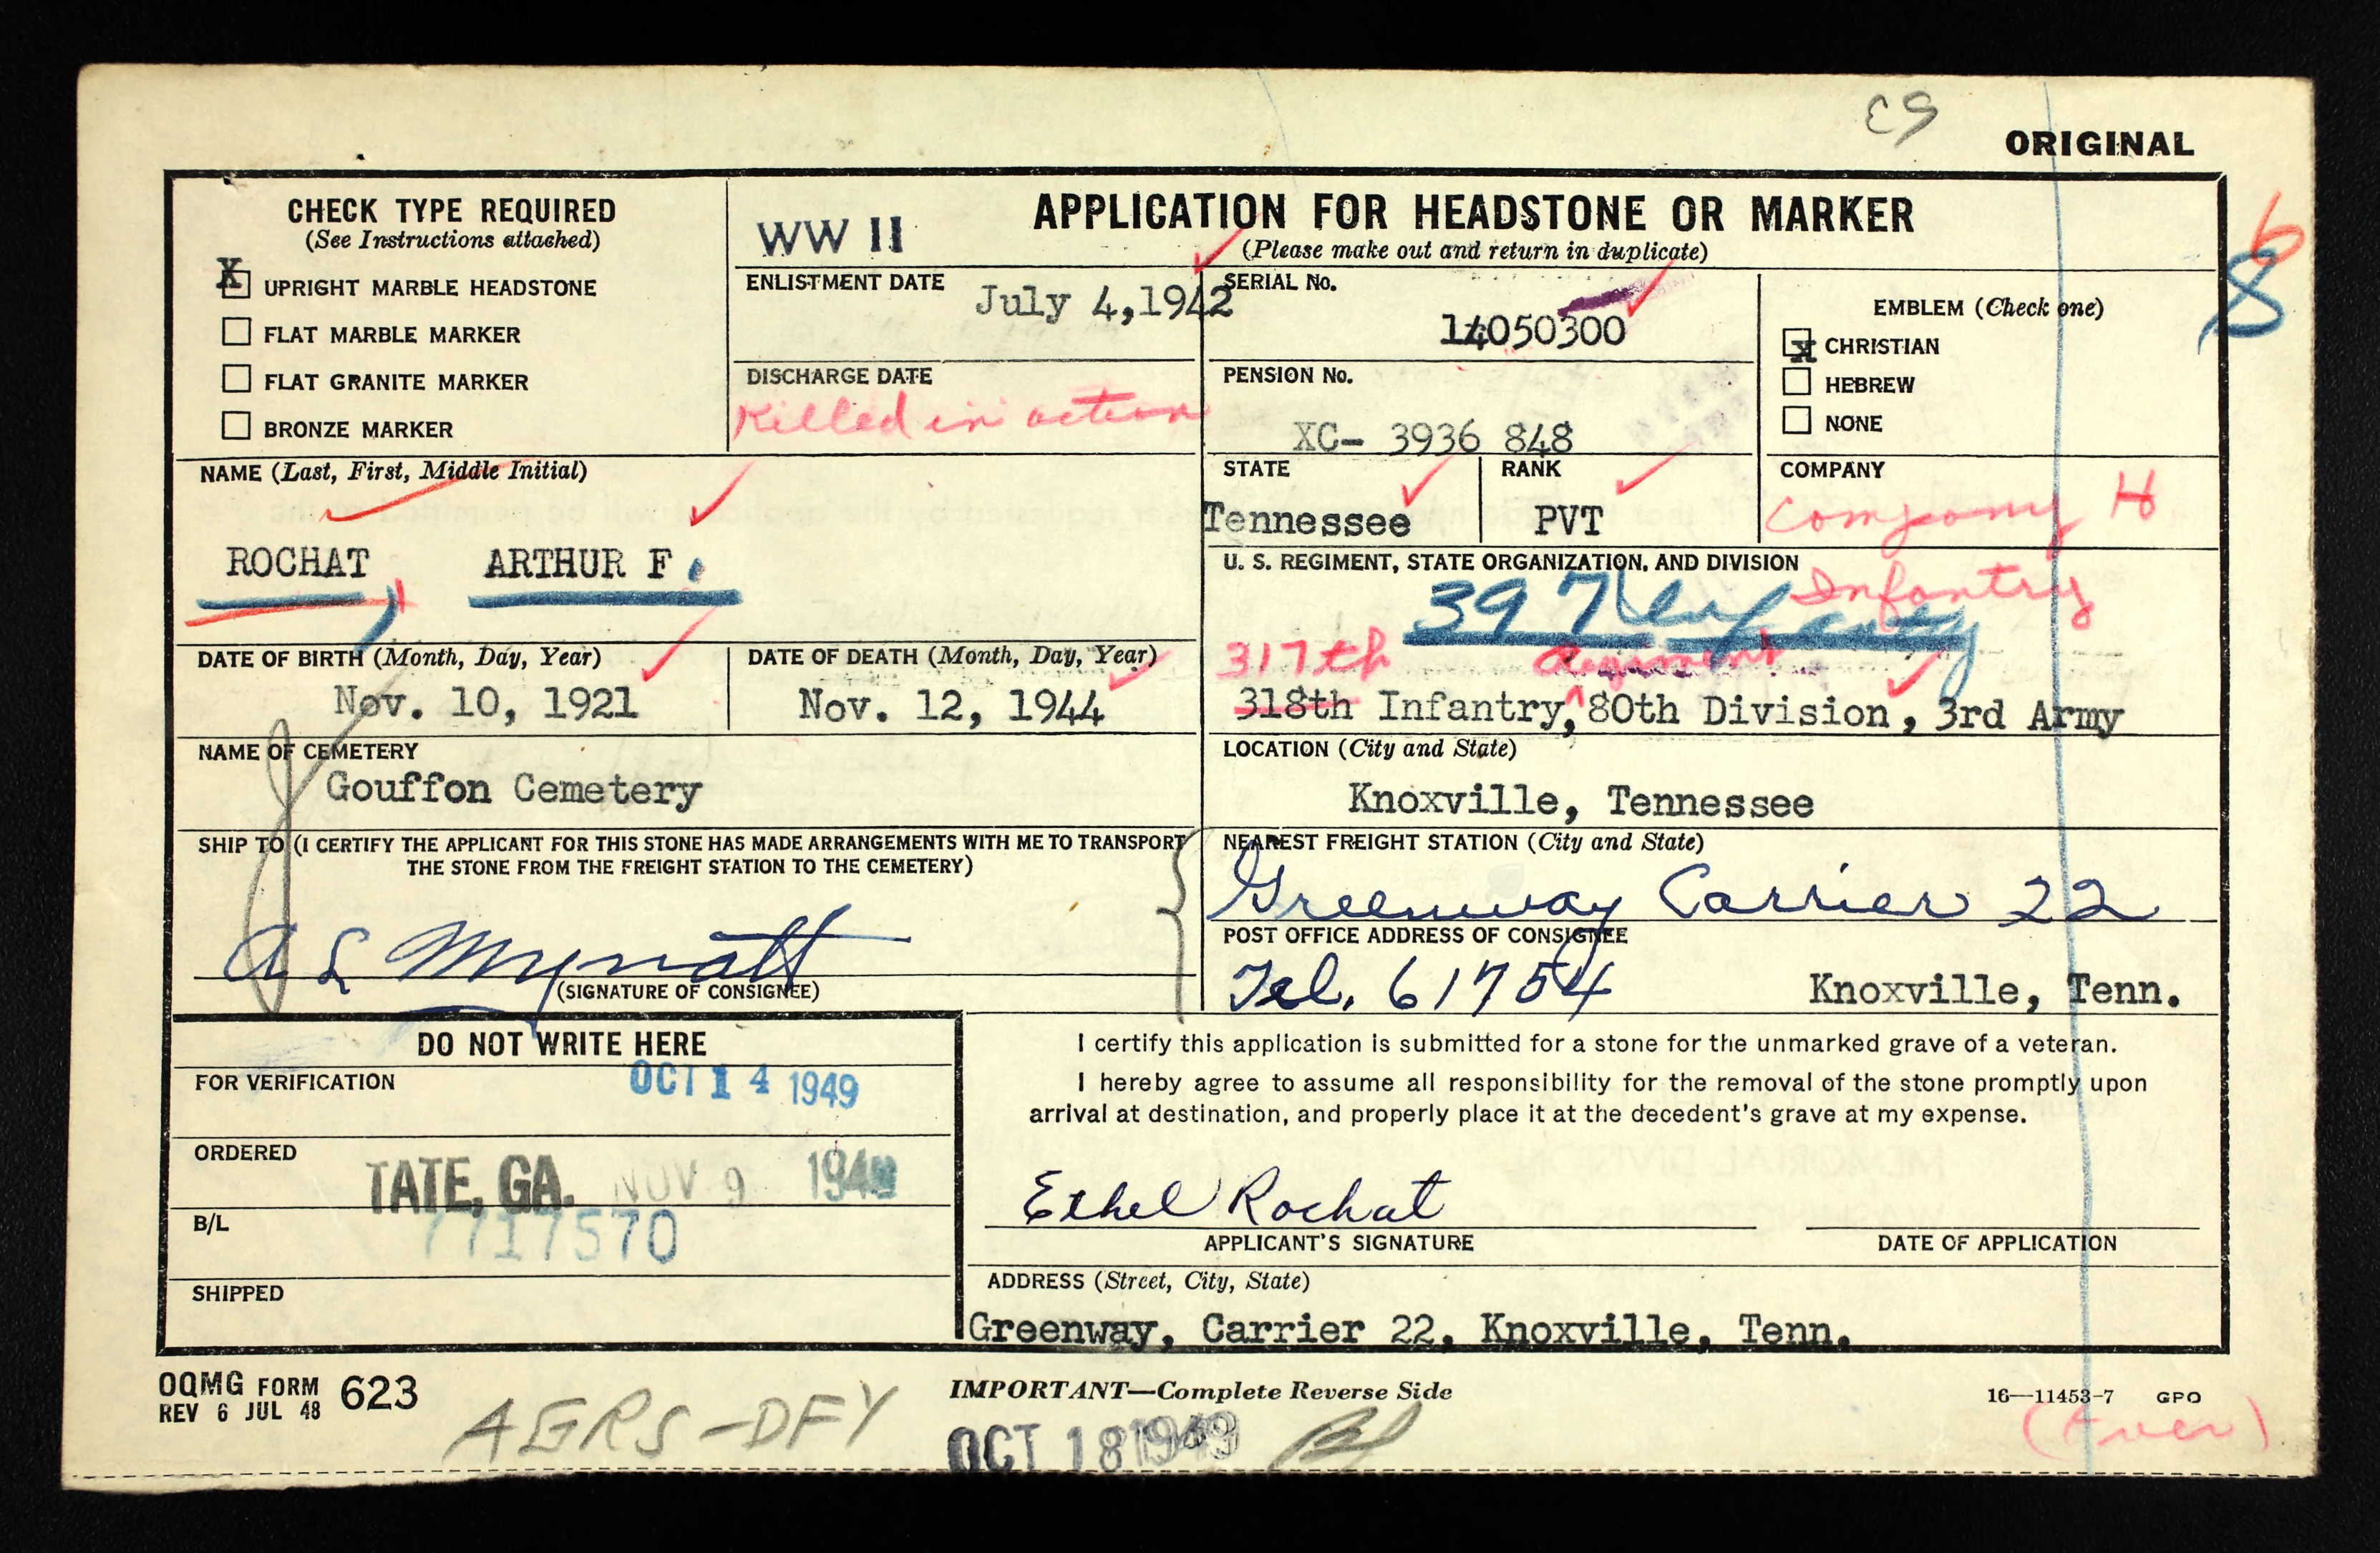 ORIGINAL
CHECK TYPE REQUIRED
(See Instructions attached)
X UPRIGHT MARBLE HEADSTONE
FLAT MARBLE MARKER
FLAT GRANITE MARKER
BRONZE MARKER
WW II
APPLICATION FOR HEADSTONE OR MARKER
(Please make out and return in duplicate)
ENLISTMENT DATE
July 4, 1942
SERIAL No.
14050300
DISCHARGE DATE
Killed in action
PENSION No.
XC- 3936 848
EMBLEM (Check one)
x CHRISTIAN
HEBREW
NONE
6
8
NAME (Last, First, Middle Initial)
ROCHAT ARTHUR F.
STATE
Tennessee
RANK
PVT
COMPANY
Company H
U. S. REGIMENT, STATE ORGANIZATION, AND DIVISION
397 Infantry
Infantry
317th Regiment
318th Infantry, 80th Division, 3rd Army
DATE OF BIRTH (Month, Day, Year)
Nov. 10, 1921
DATE OF DEATH (Month, Day, Year)
Nov. 12, 1944
NAME OF CEMETERY
Gouffon Cemetery
LOCATION (City and State)
Knoxville, Tennessee
SHIP TO (I CERTIFY THE APPLICANT FOR THIS STONE HAS MADE ARRANGEMENTS WITH ME TO TRANSPORT
THE STONE FROM THE FREIGHT STATION TO THE CEMETERY)
A L Mynatt
(SIGNATURE OF CONSIGNEE)
NEAREST FREIGHT STATION (City and State)
Greenway Carrier 22
POST OFFICE ADDRESS OF CONSIGNEE
Tel. 61754 Knoxville, Tenn.
DO NOT WRITE HERE
FOR VERIFICATION
OCT 14 1949
ORDERED
TATE, GA. NOV 9 1949
B/L
7717570
SHIPPED
I certify this application is submitted for a stone for the unmarked grave of a veteran.
I hereby agree to assume all responsibility for the removal of the stone promptly upon
arrival at destination, and properly place it at the decedent's grave at my expense.
Ethel Rochat
APPLICANT'S SIGNATURE
DATE OF APPLICATION
ADDRESS (Street, City, State)
Greenway, Carrier 22, Knoxville, Tenn.
OQMG FORM 623
REV 6 JUL 48
IMPORTANT—Complete Reverse Side
16—11453-7 GPO
AGRS-DFY
OCT 18 1949
(over)